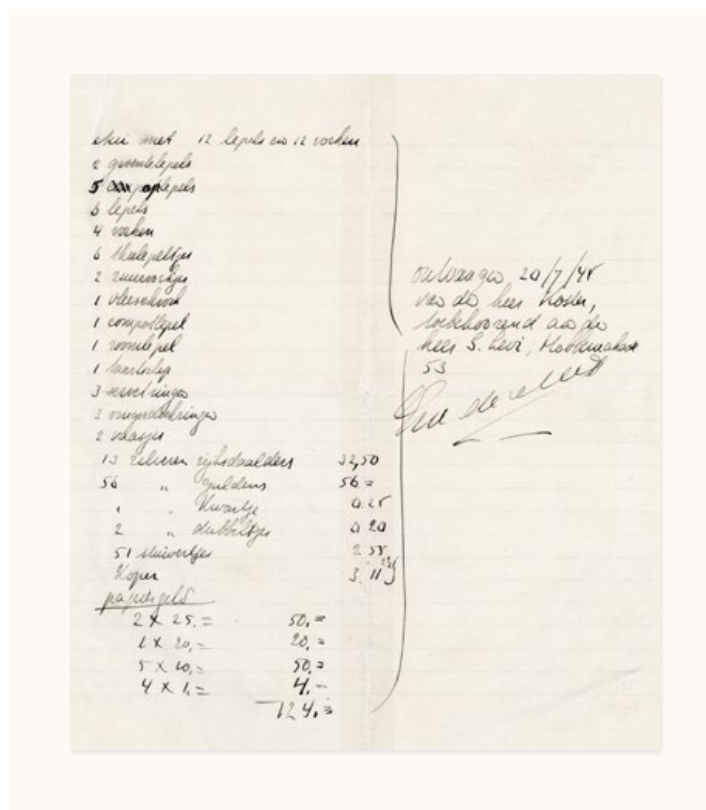 etui met 12 lepels en 12 vorken
2 groentelepels
5 oplepels
6 lepels
4 vorken
6 theelepeltjes
2 zuurvorkjes
1 vleeschvork
1 compotlepel
1 roomlepel
1 taartschep
3 servetringen
3 vingerdoekringen
2 vaasjes
13 zilveren rijksdaalders 32,50
56 " guldens 56.=
1 " kwartje 0.25
2 " dubbeltjes 0.20
51 stuivertjes 2.55
Koper 3.11
papiergeld
2 X 25.= 50,=
1 X 20,= 20,=
5 X 10,= 50,=
4 X 1,= 4.-
124,=
ontvangen 20/7/45
van de heer Koster,
toebehoorend aan de
heer S. Levi,
53